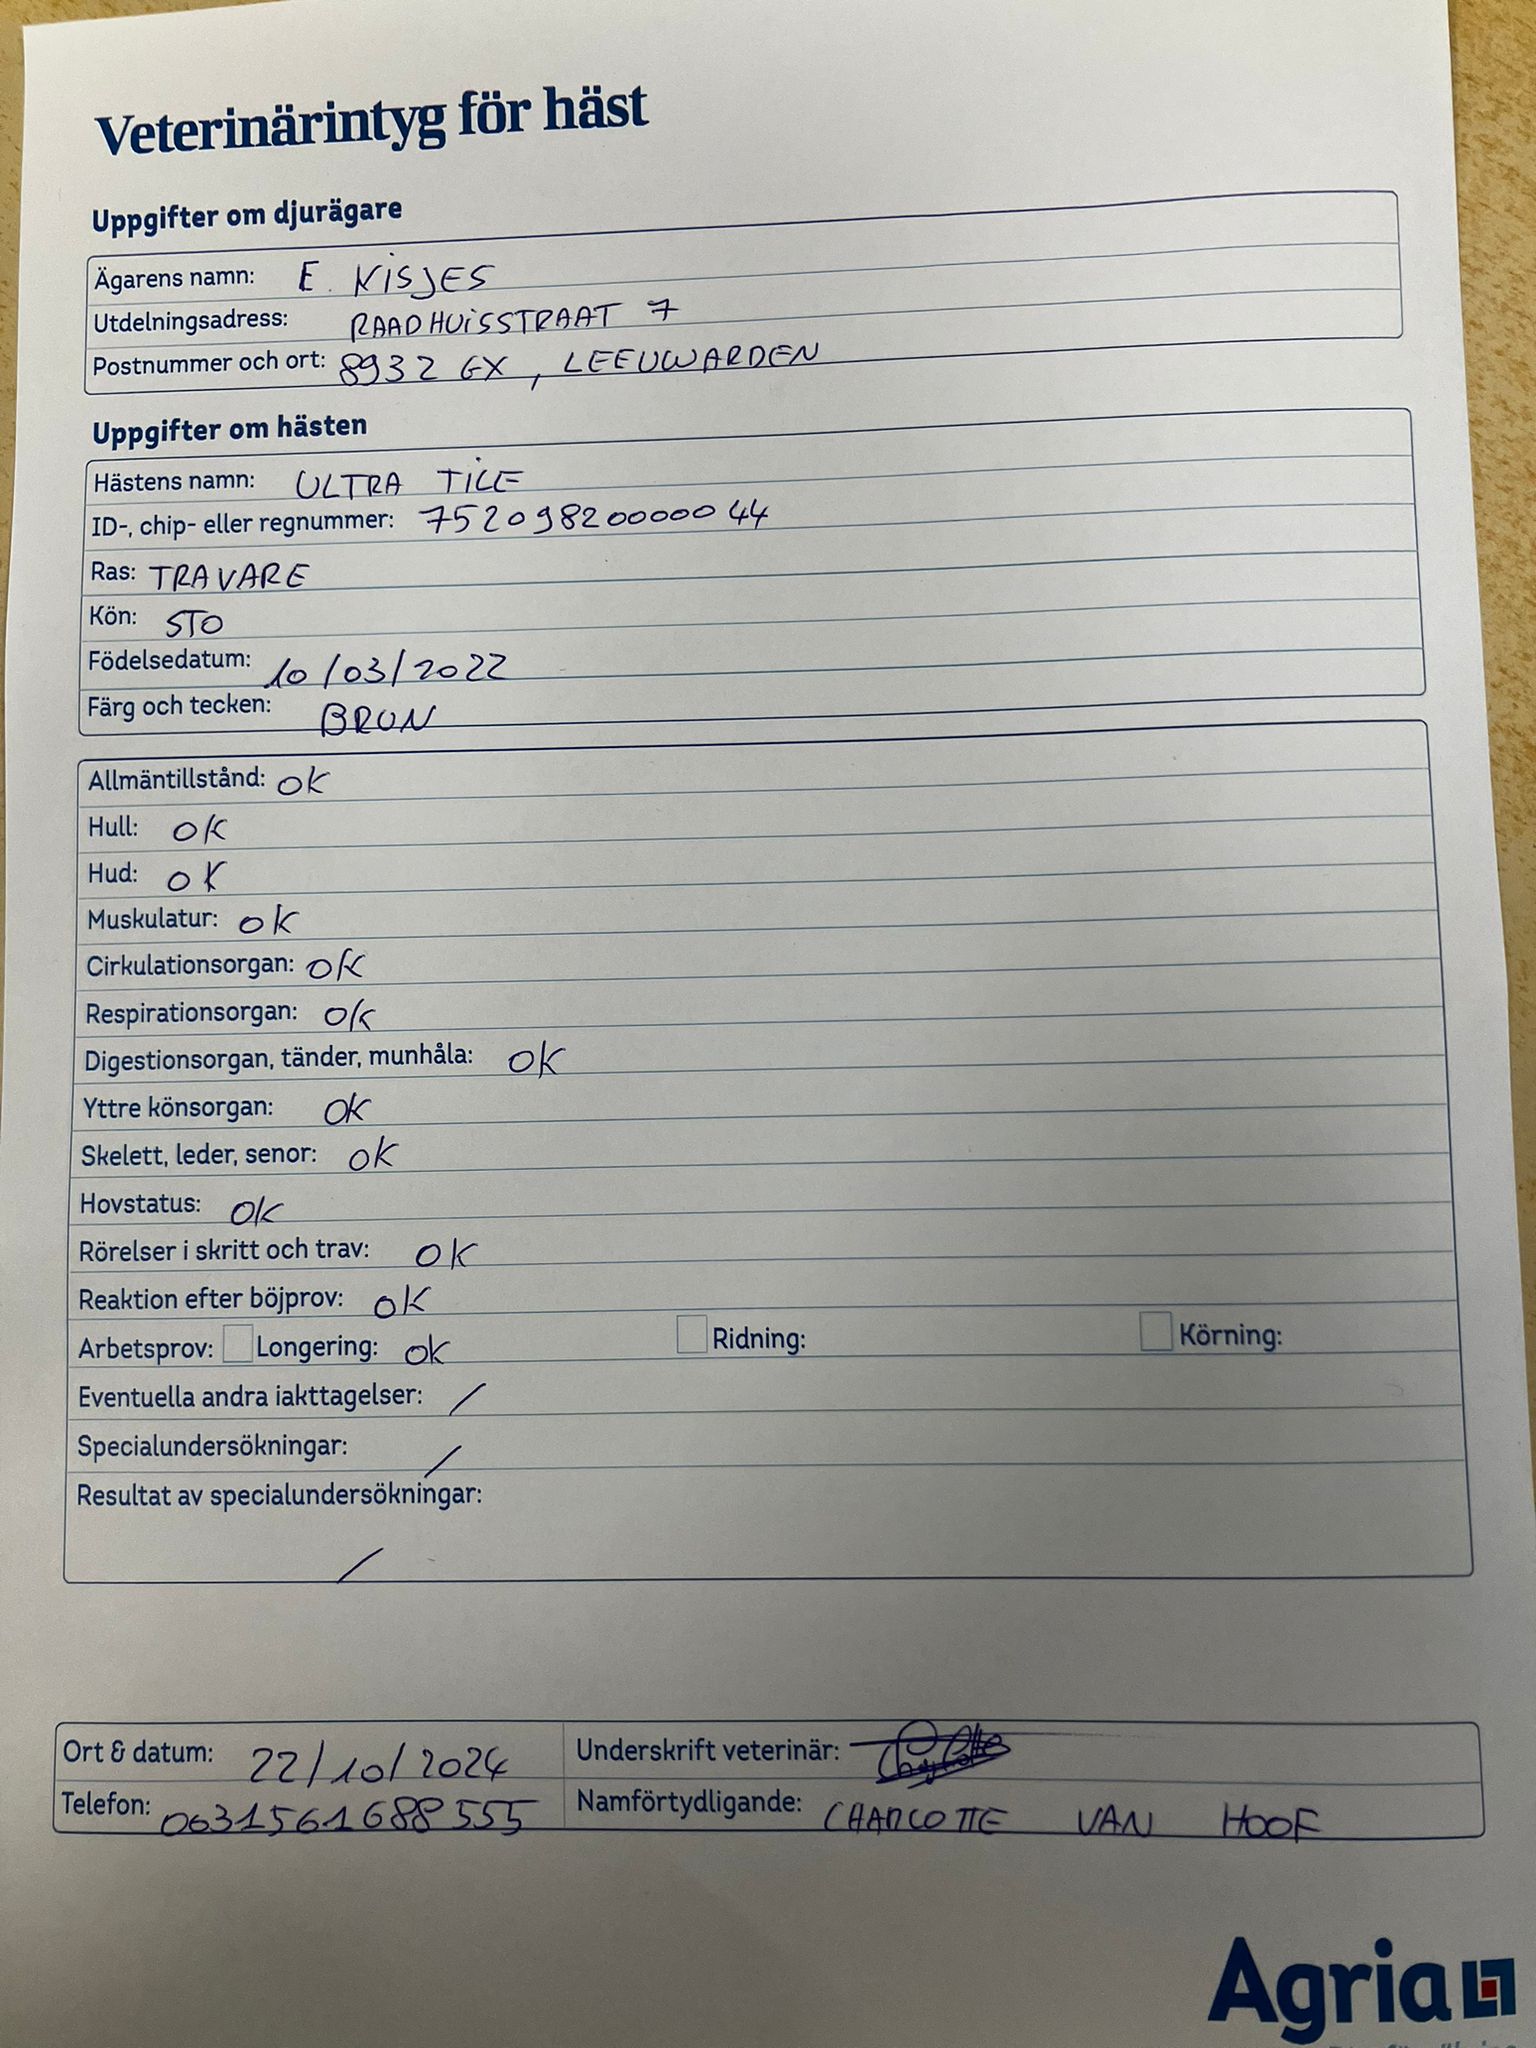 Veterinärintyg för häst
Uppgifter om djurägare
Ägarens namn: E. NISJES
Utdelningsadress: RAADHUISSTRAAT 7
Postnummer och ort: 8932 GX, LEEUWARDEN
Uppgifter om hästen
Hästens namn: ULTRA TILE
ID-, chip- eller regnummer: 752098200000044
Ras: TRAVARE
Kön: STO
Födelsedatum: 10/03/2022
Färg och tecken: BRUN
Allmäntillstånd: OK
Hull: OK
Hud: OK
Muskulatur: OK
Cirkulationsorgan: OK
Respirationsorgan: OK
Digestionsorgan, tänder, munhåla: OK
Yttre könsorgan: OK
Skelett, leder, senor: OK
Hovstatus: OK
Rörelser i skritt och trav: OK
Reaktion efter böjprov: OK
Arbetsprov: Longering: OK Ridning: Körning:
Eventuella andra iakttagelser: /
Specialundersökningar: /
Resultat av specialundersökningar:
/
Ort & datum: 22/10/2024 Underskrift veterinär:
Telefon: 0031561688555 Namförtydligande: CHARLOTTE VAN HOOF
Agria